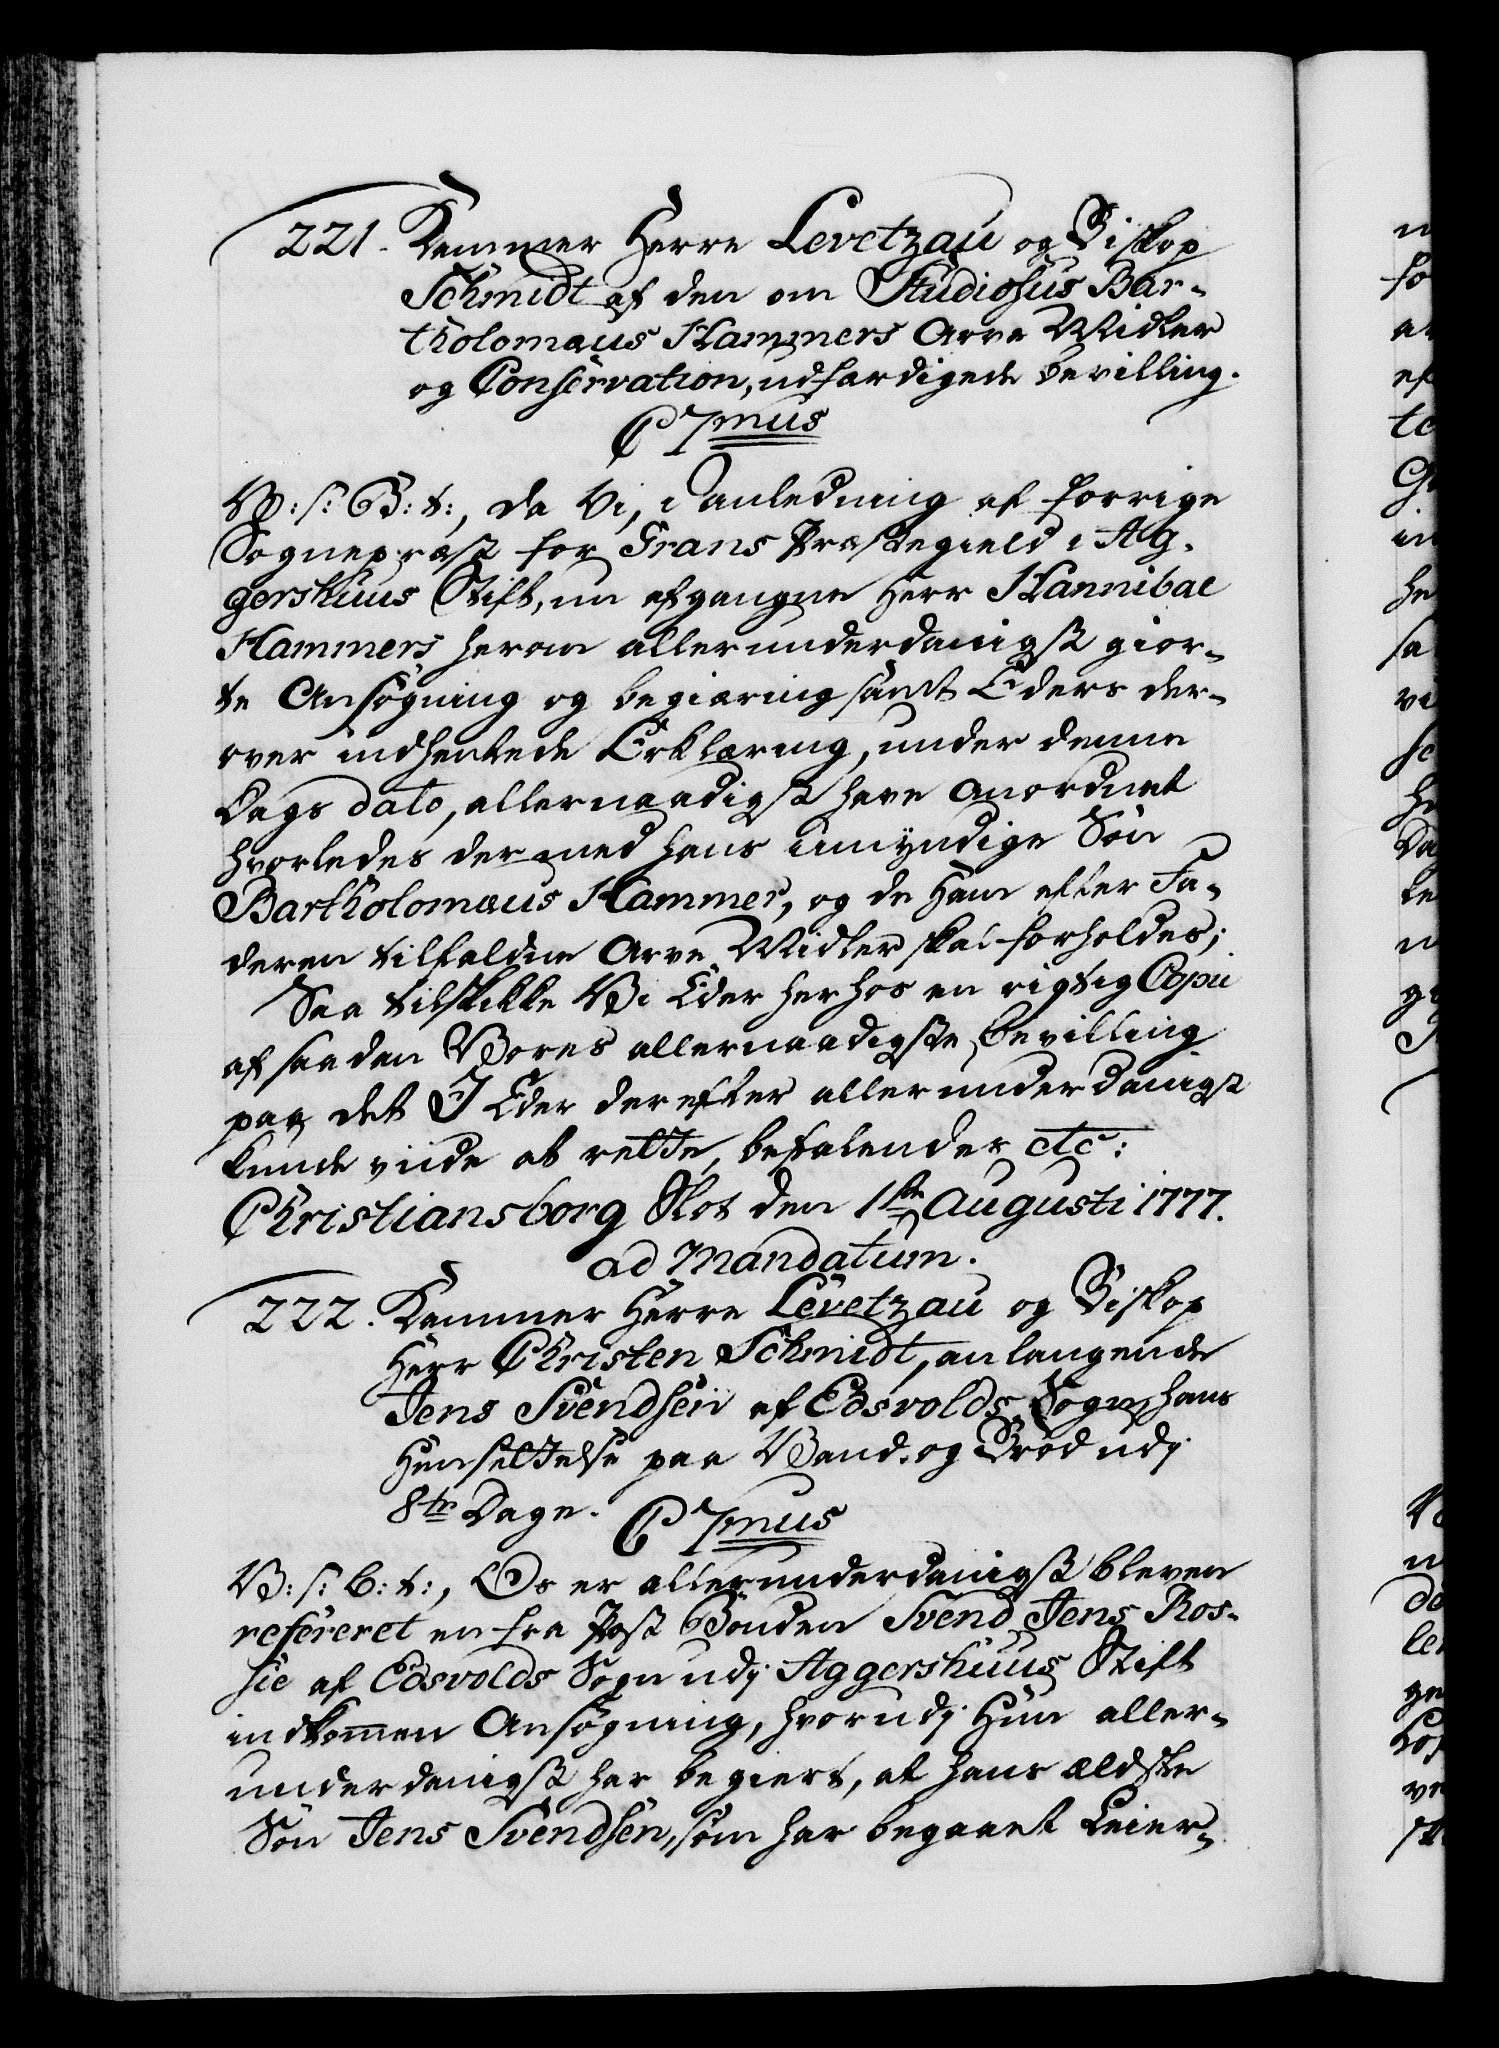 221. Kammer Herre Levetzau og Biskop
Schmidt af den om Studiosus Bar-
tholomæus Hammers Arve Midler
og Conservation, udfærdigede bevilling.
C 7mus
V: s: G: t:, da Vi, i anledning af forrige
Sognepræst for Grans Præstegield i Ag-
gershuus Stift, nu afgangne Herr Hannibal
Hammers herom allerunderdanigst gior-
te Ansøgning og begiæring samt Eders der-
over indhentede Erklæring, under denne
Dags dato, allernaadigst have anordnet
hvorledes der med hans umyndige Søn
Bartholomæus Hammer, og de ham efter Fa-
deren tilfaldne Arve Midler skal forholdes;
Saa tilskikke Vi Eder herhos en rigtig Copii
af saadan Vores allernaadigste bevilling
paa det I Eder derefter allerunderdanigst
kunde viide at rette, befalendes etc:
Christiansborg Slot den 1ste Augusti 1777.
ad Mandatum.
222. Kammer Herre Levetzau og Biskop
Herr Christen Schmidt, anlangende
Jens Svendsen af Edsvolds Sogn, hans
Hensettelse paa Vand og Brød udj
8te Dage. C 7mus
V: s: G: t:, Os er allerunderdanigst bleven
refereret en fra Post Bonden Svend Jens Ros-
sie af Edsvolds Sogn udj Aggershuus Stift
indkommen Ansøgning, hvorudj Hun aller-
underdanigst har begiert, at hans ældste
Søn Jens Svendsen, som har begaaet Leier-